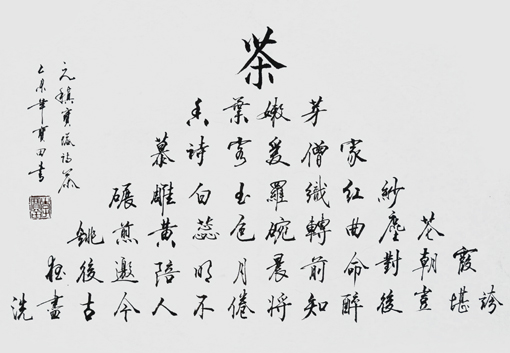 茶
香葉嫩芽
慕詩客愛僧家
碾雕白玉羅織紅紗
銚煎黃蕊色碗轉曲塵花
夜後邀陪明月晨前命對朝霞
洗盡古今人不倦將知醉後豈堪誇
元稹寶塔詩茶
乙未年寶田書